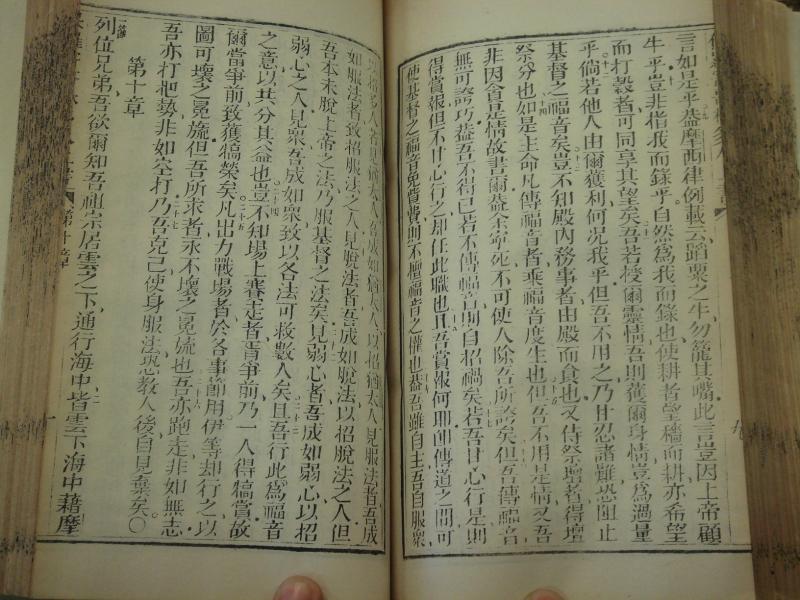 言如是乎蓋摩西律例載云蹈粟之牛勿籠其嘴此言豈因上帝顧
牛乎豈非指我而錄乎自然為我而錄也使耕者望穡而耕亦希望
而打穀者可同享其望矣吾若授爾靈情吾則獲爾身情豈為過量
乎倘若他人由爾獲利何況我乎但吾不用之乃甘忍諸難恐阻止
基督之福音矣豈不知殿內務事者由殿而食也又侍祭壇者得壇
祭分也如是上命凡傳福音者乘福音度生也但吾不用是情又吾
非因貪是情故書爾蓋余寧死不可使人除吾所誇矣但吾傳福音
無可誇巧蓋吾不得已若不傳福音則自招禍矣若吾甘心行是則
得賞報但不甘心行之却任此職也且吾賞報何耶即傳道之間可
使基督之福音免費則不擅福音之權也蓋吾雖自主吾自服衆
以招多人吾成如猶太人以招猶太人見服法者吾成
如服法者致招服法之人見脫法者吾成如脫法以招脫法之人但
吾本未脫上帝之法乃服基督之法矣見弱心者吾成如弱心以招
弱心之人見衆吾成如衆致以各法可救數人矣且吾行此為福音
之意以共分其益也豈不知場上賽走者皆爭前乃一人得犒賞故
爾當爭前致獲犒榮矣凡出力戰場者於各事節用伊等却行之以
圖可壞之冕旒但吾所求者永不壞之冕旒也吾亦跑走非如無志
吾亦打把勢非如空打乃吾克己使身服法恐教人後自見棄矣〇
第十章
列位兄弟吾欲爾知吾祖宗居雲之下通行海中皆雲下海中藉摩
第十章